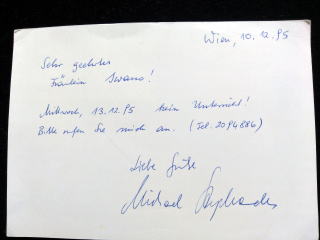 Wien, 10.12.95
Sehr geehrtes
Fräulein Iwano!
Mittwoch, 13.12.95 kein Unterricht!
Bitte rufen Sie mich an. (Tel. 2094886)
Liebe Grüße
Michael